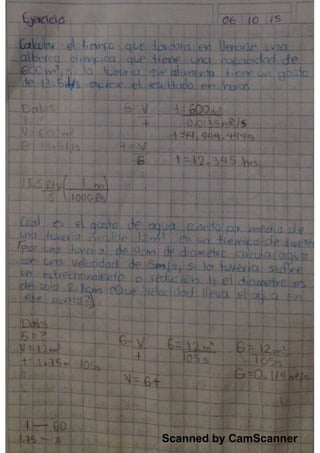 Ejercicio 06 10 15
Calcular el tiempo que tardara en llenarse una
alberca olimpica que tiene una capacidad de
600m³, si la tuberia que alimenta tiene un gasto
de 13.5 l/s exprese el resultado en horas
Datos G=V t=600m³
t t 0.0135m³/s
V=600m³ t=44,444.4445
G=13.5l/s t=V
G t=12.345 hrs
13.5 lts ( 1 m³ )
s 1000 lts
Cual es el gasto de agua cuando por medio de
una tuberia circulan 12m³ en un tiempo de
Por una tuberia de de diametro circula agua
con una velocidad de 5m/s, si la tuberia sufre
un estrechamiento o reduccion y el diametro es
de solo ¿Que velocidad lleva el agua en
ese punto?
Datos
G=? G=V G=12m³ G=12m³
V=12m³ t 105s 105s
t=1.75m 105s G=0.114m³/s
V=Gt
1 — 60
1.75 — x
Scanned by CamScanner